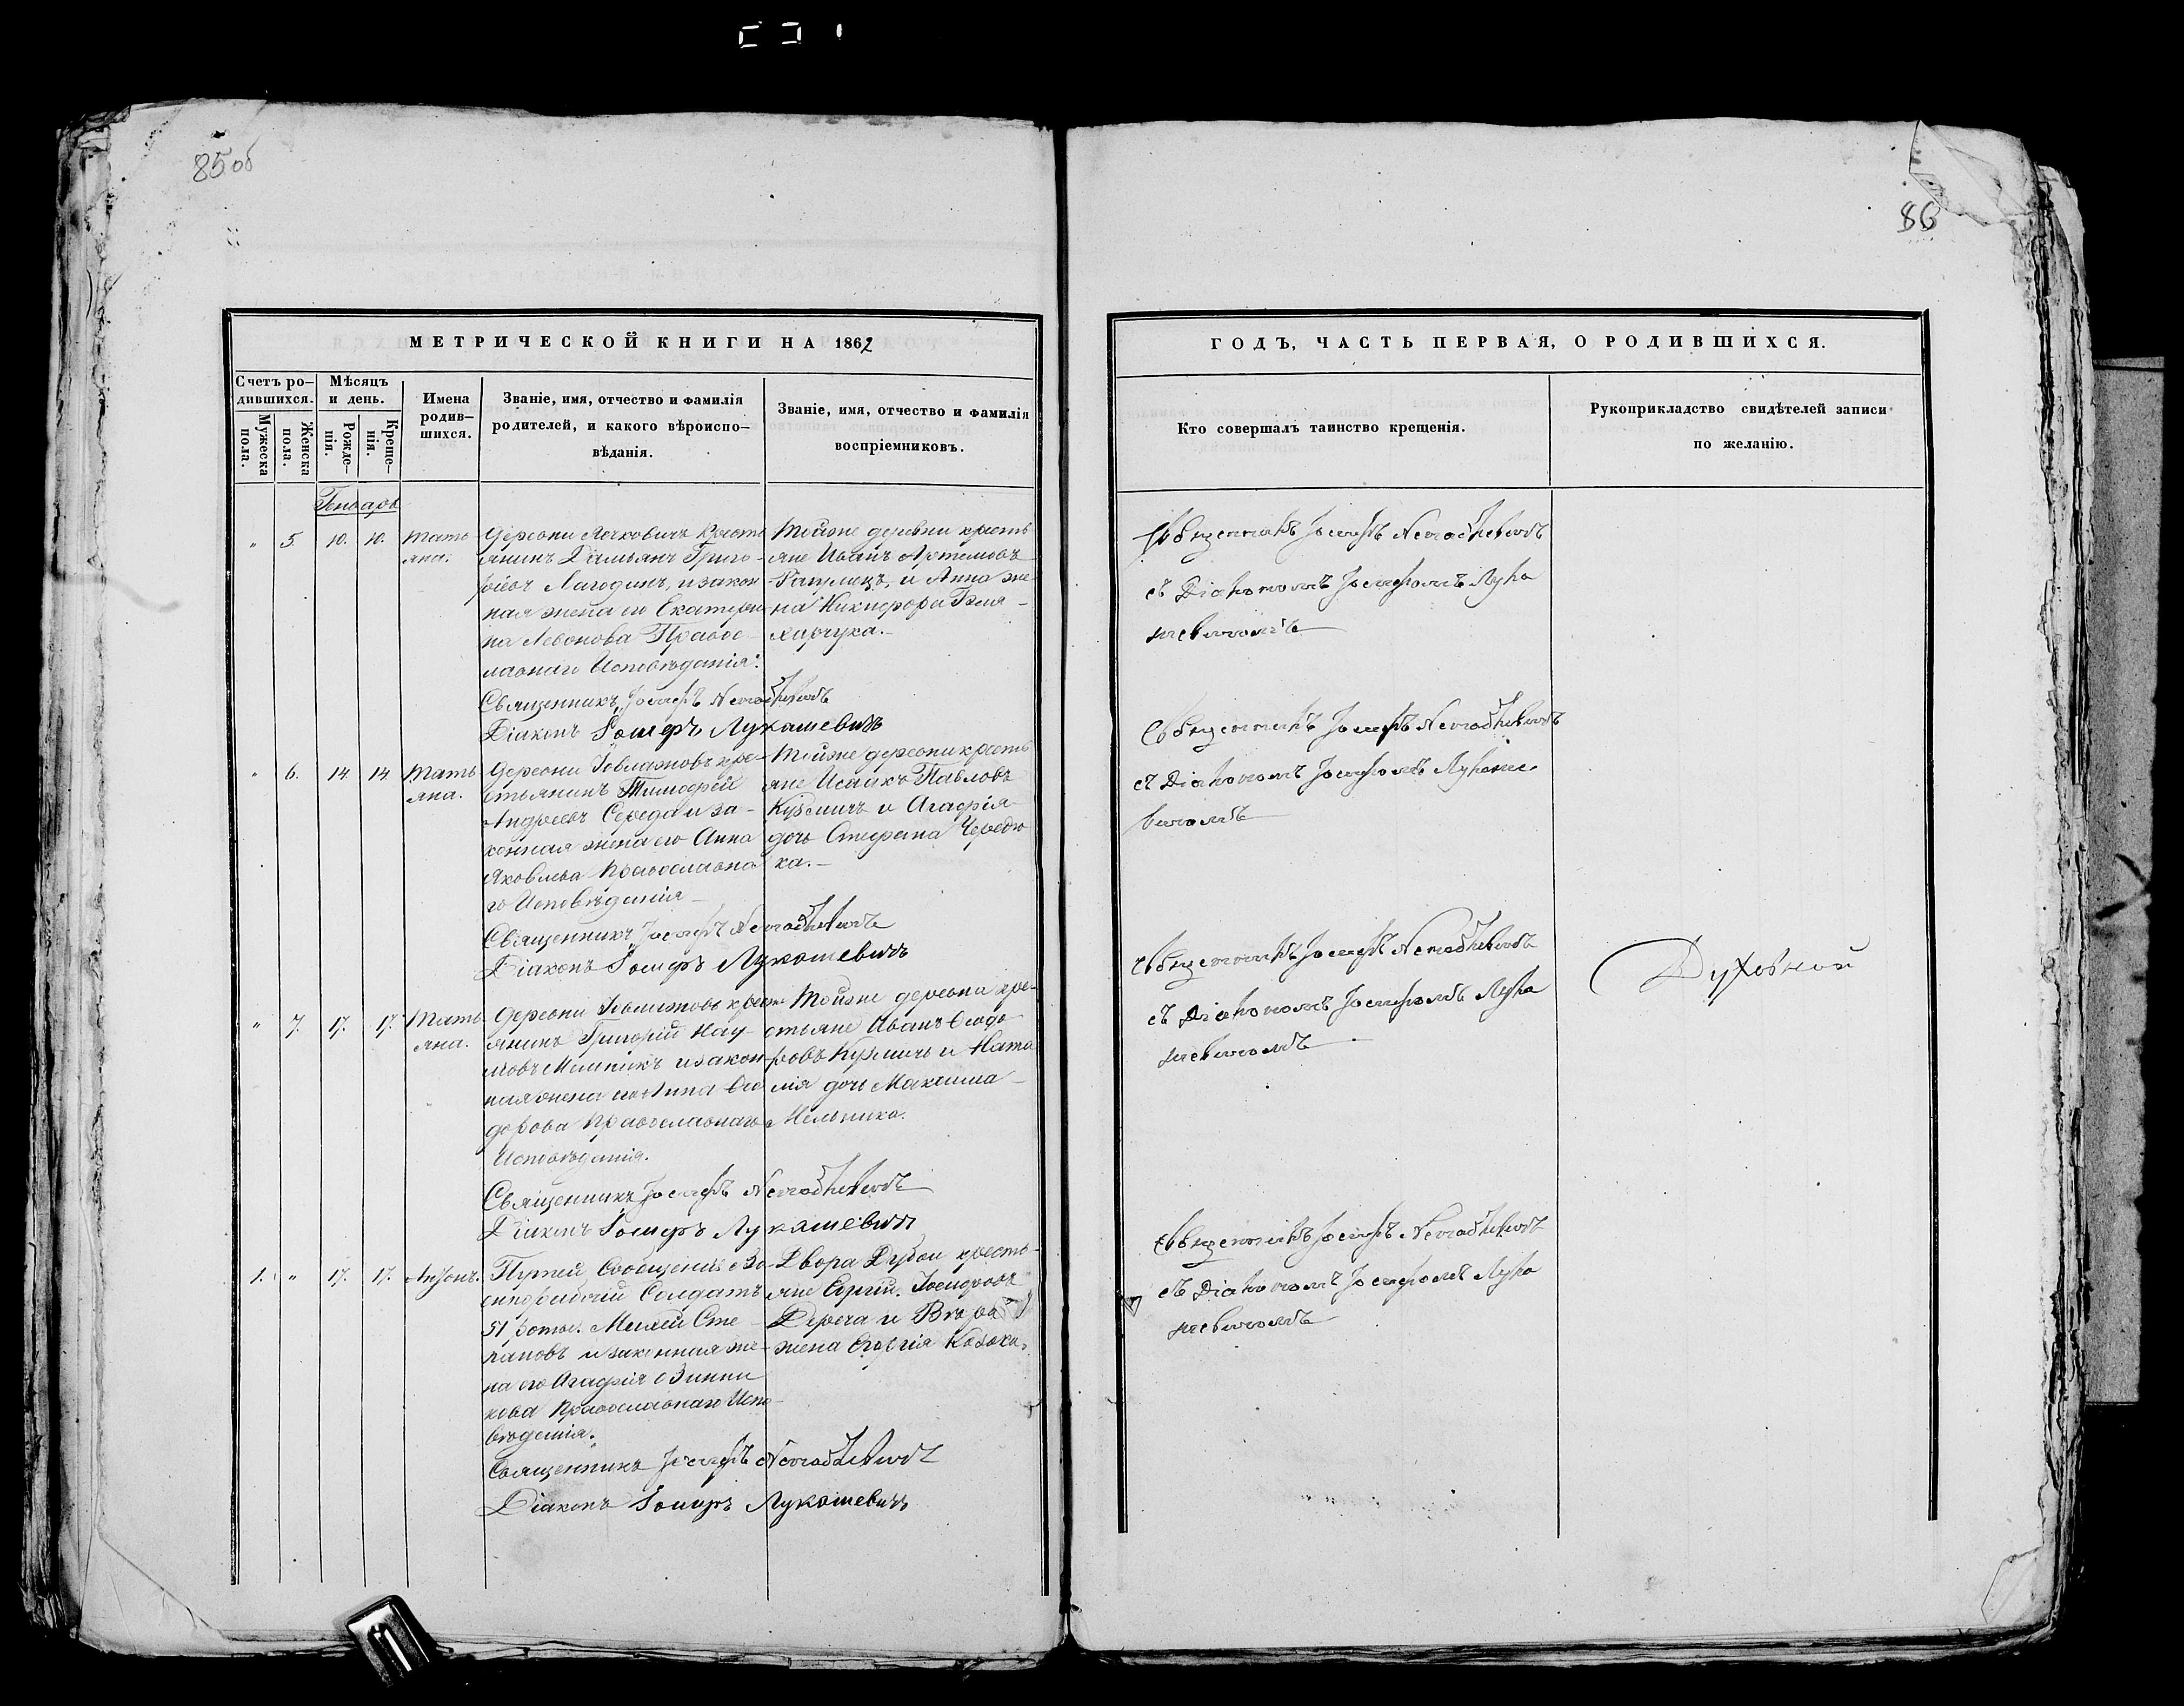 85 об
86
МЕТРИЧЕСКОЙ КНИГИ НА 1862
ГОДЪ, ЧАСТЬ ПЕРВАЯ, О РОДИВШИХСЯ.
Счетъ ро-
дившихся.
Мужеска пола.
Женска пола.
Мѣсяцъ
и день.
Рожде-
нія.
Креще-
нія.
Имена
родив-
шихся.
Званіе, имя, отчество и фамилія
родителей, и какого вѣроиспо-
вѣданія.
Званіе, имя, отчество и фамилія
воспріемниковъ.
Кто совершалъ таинство крещенія.
Рукоприкладство свидѣтелей записи
по желанію.
Генварь
" 5 10. 10.
Тать
яна.
Деревни кресть
янинъ Дамьянъ Григо-
рьевъ Лагодинъ, и закон
ная жена его Екатери
на Левонова Правос-
лавнаго Исповѣданія.
Священникъ Іосифъ
Діаконъ Іосифъ Лукашевичъ
Тойже деревни кресть
яне Иванъ Артемовъ
и Анна же
на Никифора
Священникъ Іосифъ
съ Діакономъ Іосифомъ Лука
шевичомъ
" 6. 14 14
Тать
яна.
Деревни кре-
стьянинъ Тимофей
Андреевъ Середа и за-
конная жена его Анна
Яковлева Православна
го Исповѣданія
Священникъ Іосифъ
Діаконъ Іосифъ Лукашевичъ
Тойже деревни кресть
яне Исаакъ Павловъ
Кузмичъ и Агафія
дочь Стефана Чередню
ка.-
Священникъ Іосифъ
съ Діакономъ Іосифомъ Лукаше
вичомъ
" 7. 17. 17.
Тать
яна.
Деревни крест
янинъ Григорій Нау-
мовъ Мелникъ и закон
ная жена его Анна Ѳео
дорова Православнаго
Исповѣданія.
Священникъ Іосифъ
Діаконъ Іосифъ Лукашевичъ
Тойже деревни кре-
стьяне Иванъ Ѳеодо
ровъ Кузмичъ и Ната
лія дочь Максима
Мельника.
Священникъ Іосифъ
съ Діакономъ Іосифомъ Лука
шевичомъ
Духовной
1. " 17. 17.
Антонъ.
Путей Сообщенія Во
еннорабочій Солдатъ
51 Михей Сте
пановъ и законная же-
на его Агафія Зинни
кова Православнаго Испо-
вѣденія.
Священникъ Іосифъ
Діаконъ Іосифъ Лукашевичъ
Двора Дубои кресть-
яне Сергій Іосифовъ
Дереча и Вѣра
жена Георгія Козака.
Священникъ Іосифъ
съ Діакономъ Іосифомъ Лука
шевичомъ